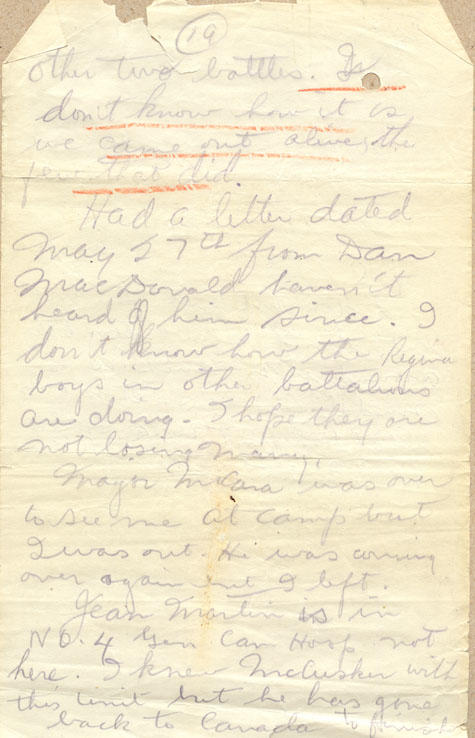 19
other two battles. I
don't know how it is
we came out alive, the
few that did.
Had a letter dated
May 27th from Dan
MacDonald haven't
heard of him since. I
don't know how the Regina
boys in other battalions
are doing. I hope they are
not losing many.
Major McCara was over
to see me at camp but
I was out. He was coming
over again but I left.
Jean Martin is in
No. 4 Gen Can Hosp not
here. I knew McCusker with
this unit but he has gone
back to Canada to finish